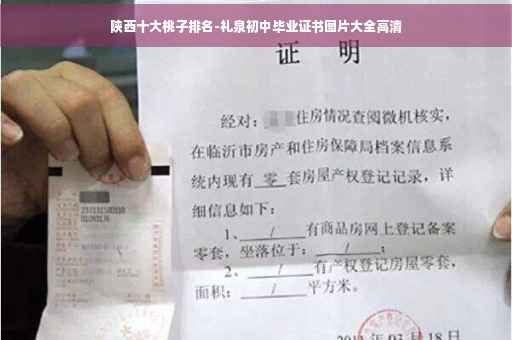 陕西十大桃子排名-礼泉初中毕业证书图片大全高清
证 明
经对: 住房情况查阅微机核实,
在临沂市房产和住房保障局档案信息系
统内现有 零 套房屋产权登记记录, 详
细信息如下:
1、 / 有商品房网上登记备案
零套, 坐落位于: / ;
2、 / 有产权登记房屋零套,
面积: / 平方米。
03 月 18 日